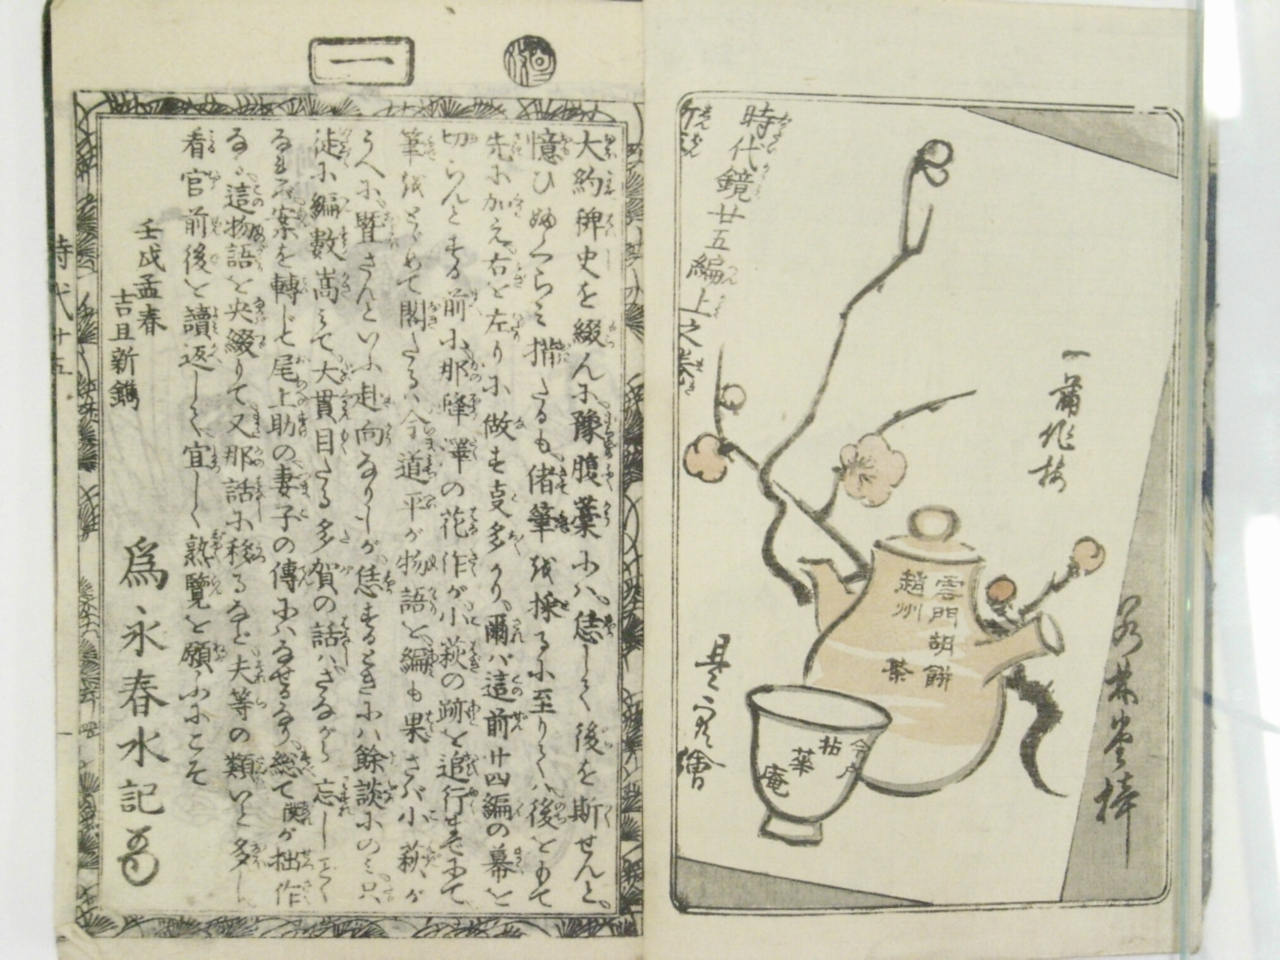 時代鏡廿五編上之巻
雲門胡餅
趙州茶
今戸
拈華庵
一
大約稗史を綴んに豫腹藁にハ恁しく後を斯せんと
憶ひめぐらし揣たるも偖筆を採るに至りてハ後をもて
先に加え右を左りに做す支多かり爾ハ這前廿四編の幕を
切らんとする前に那降澤の花作が小萩の跡を追行にて
筆をとゞめて閣たるハ今道平が物語を編も果さバ小萩が
うへに暫さんといふ赴向なりしが恁するときにハ餘談にのミ只
徒に編數嵩ミて大貫目たる多賀の話ハさながら忘しごとく
なれバ案を轉じて尾上助の妻子の傳にハなせるなり總て僕が拙作
なる這物語を央綴りて又那話に移るなど夫等の類いと多し
看官前後を讀返しく宜しく熟覽を願ふにこそ
壬戌孟春
吉旦新鐫
爲永春水記
時代廿五